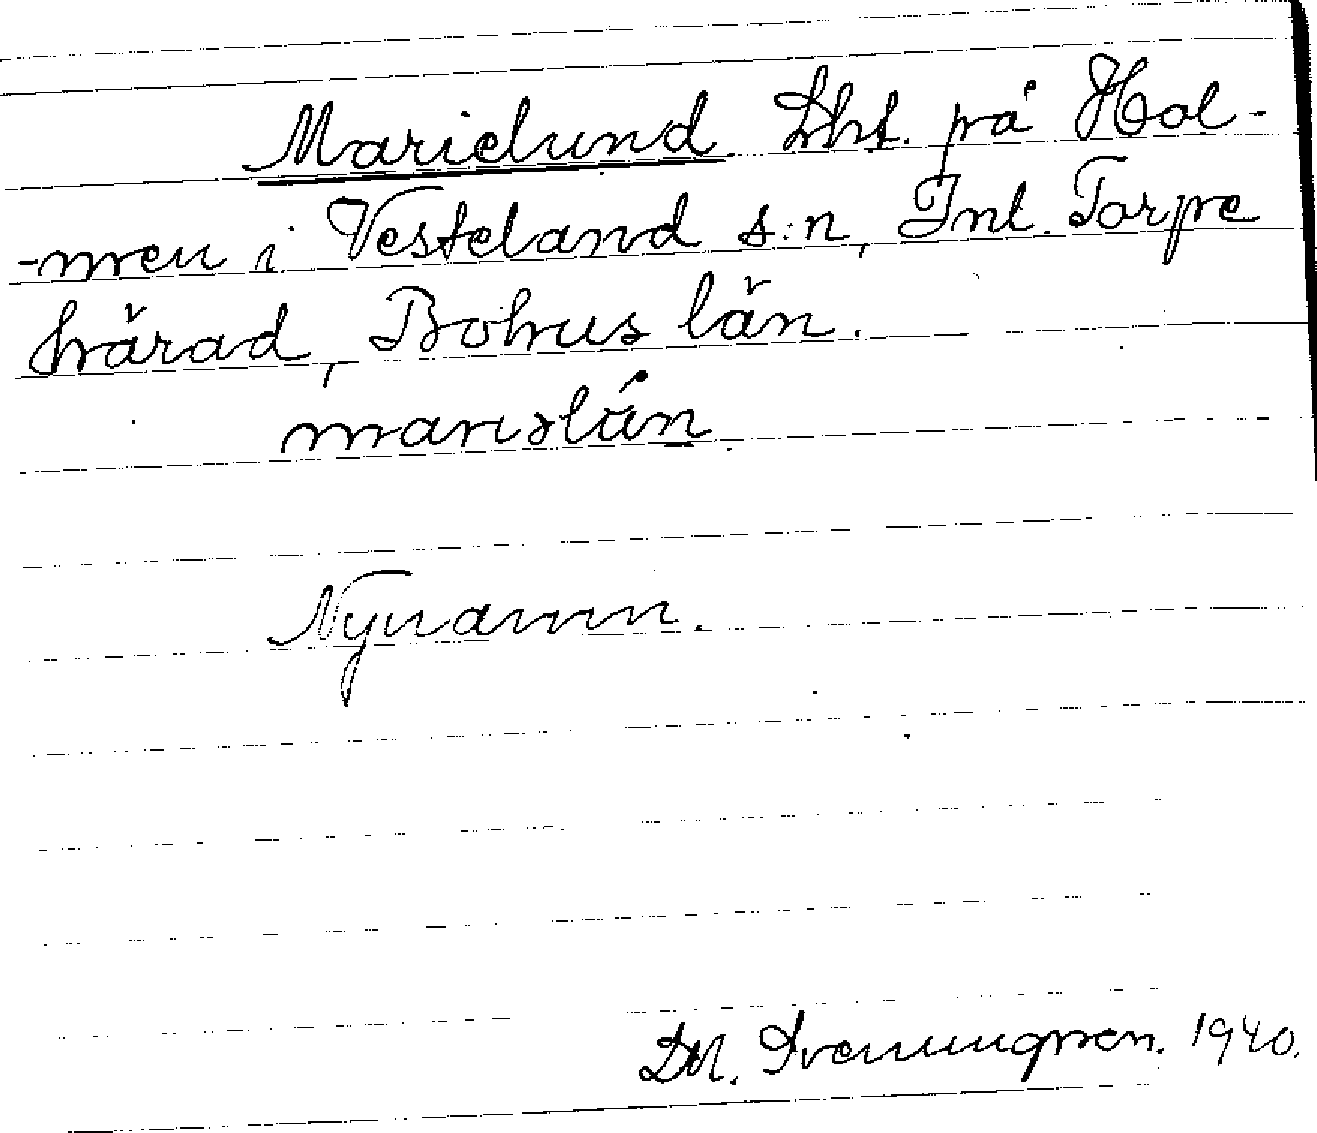 Marielund Lht. på Hol-
-men i Vesteland s:n, Inl. Torpe
härad, Bohus län.
marislún
Nynamn.
D.M. Svenungsson. 1940.